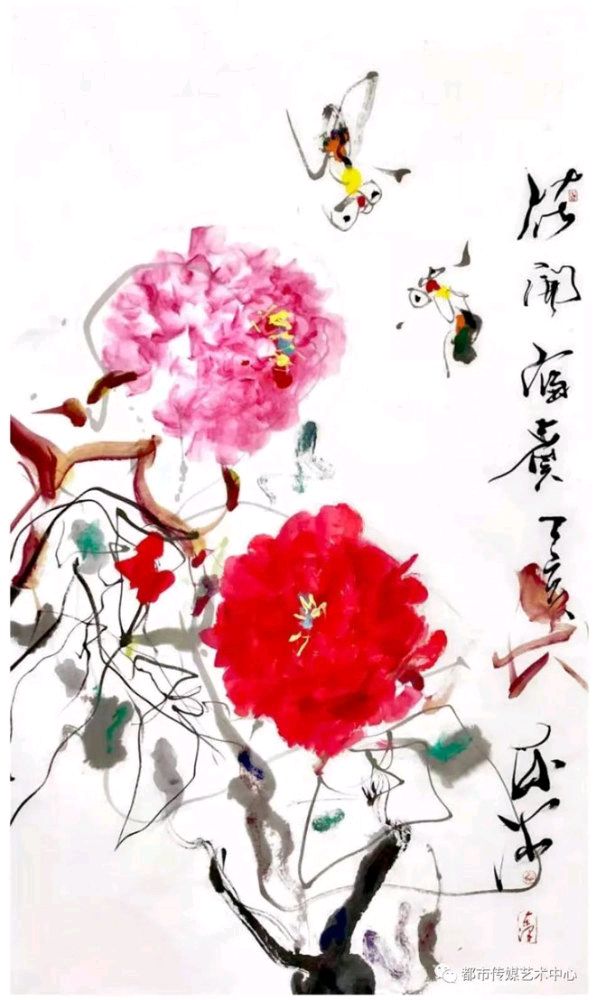 花開富貴丁亥
都市传媒艺术中心